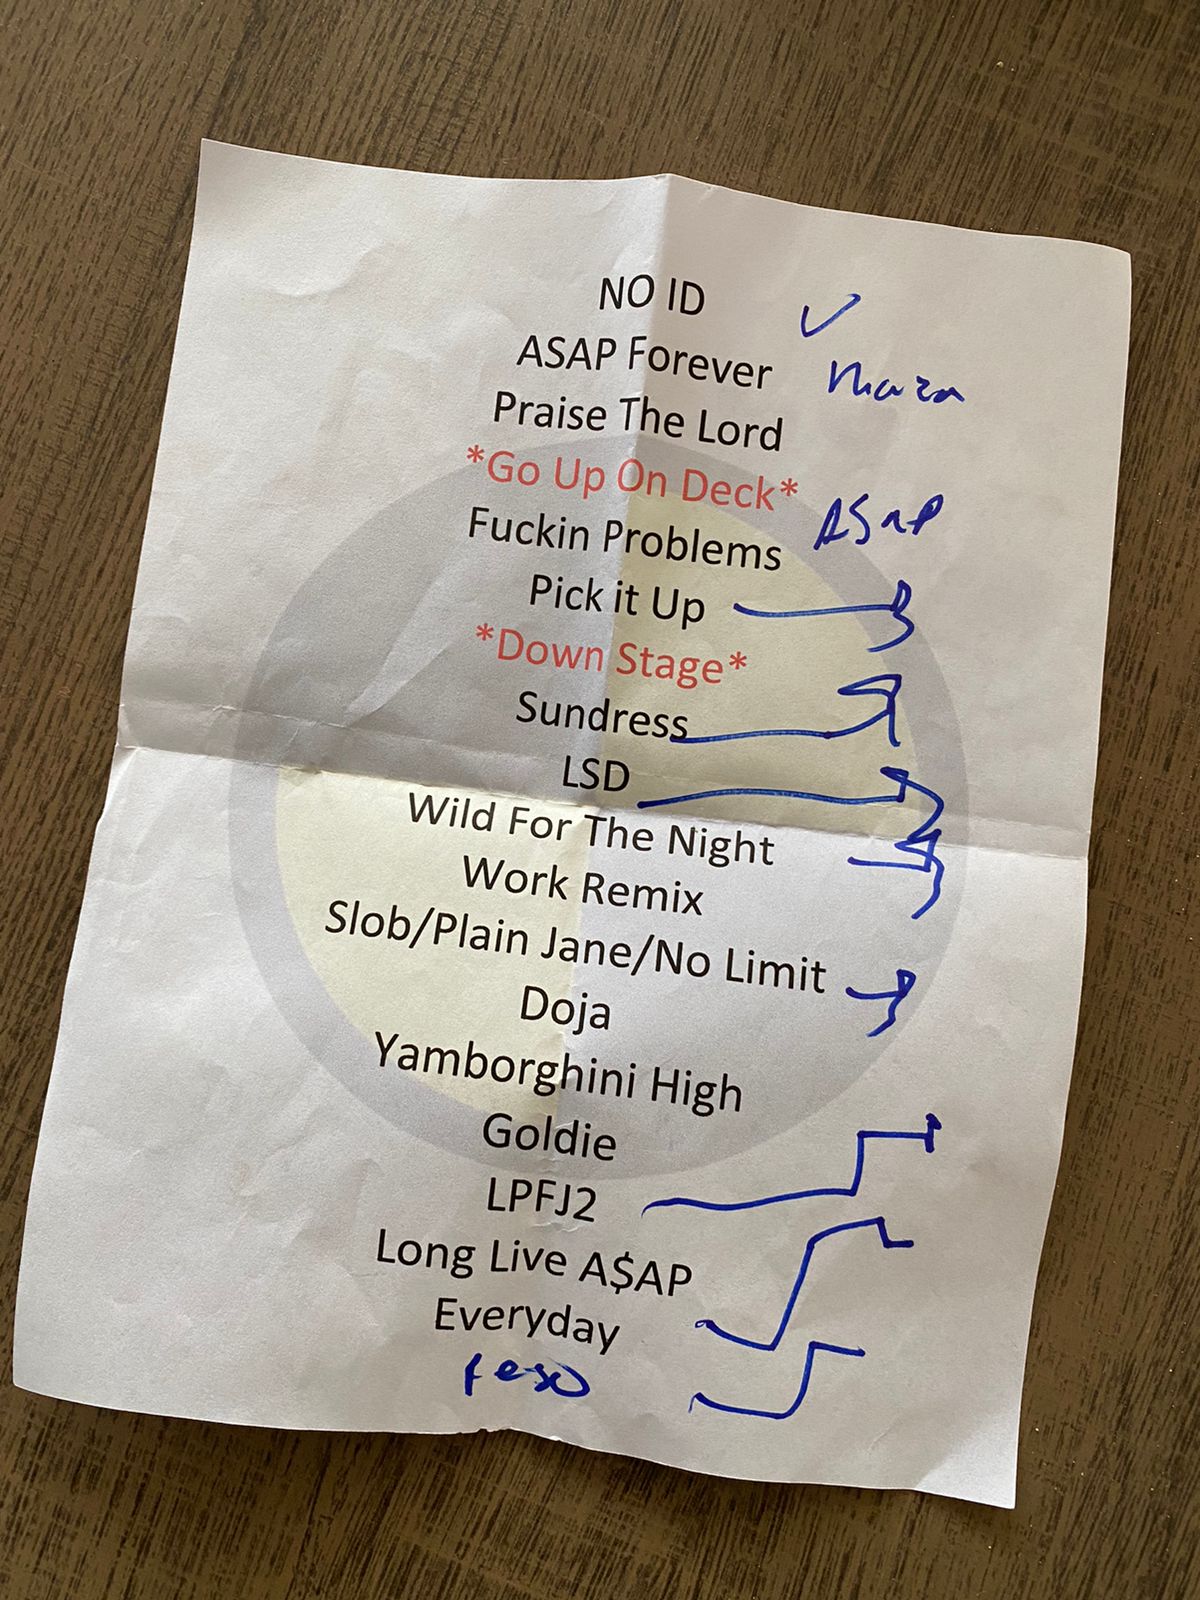 NO ID
ASAP Forever
Praise The Lord
*Go Up On Deck*
ASAP
Fuckin Problems
Pick it Up
*Down Stage*
Sundress
LSD
Wild For The Night
Work Remix
Slob/Plain Jane/No Limit
Doja
Yamborghini High
Goldie
LPFJ2
Long Live A$AP
Everyday
Peso